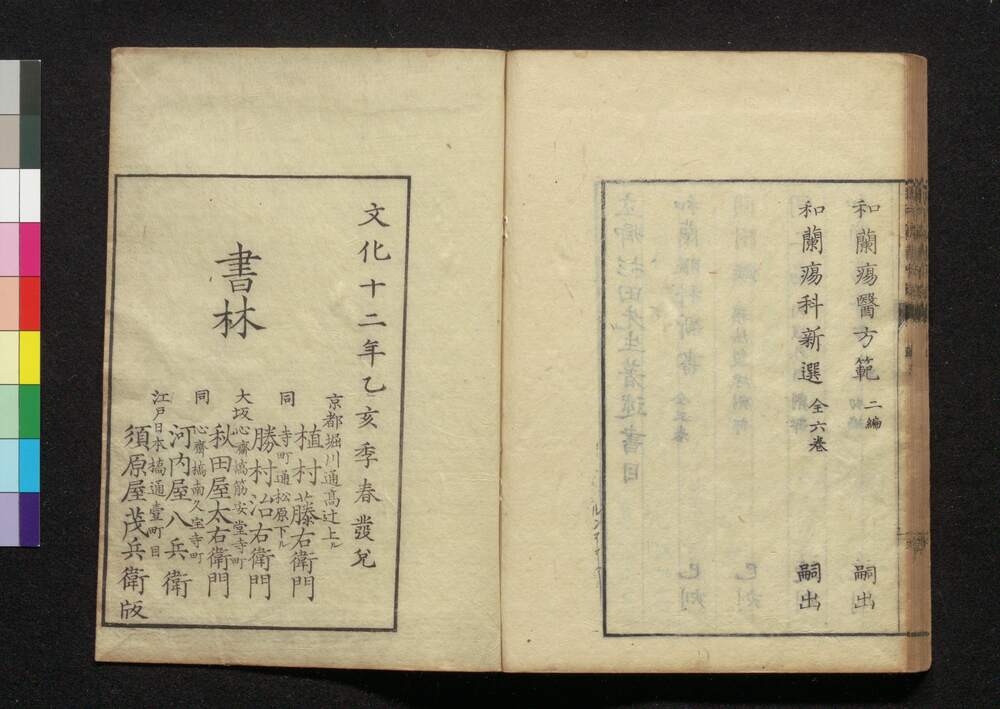 和蘭瘍醫方範 二編 嗣出
和蘭瘍科新選 全六卷 嗣出
文化十二年乙亥季春發兌
書林
京都堀川通髙辻上ル
植村藤右衛門
同 寺町通松原下ル
勝村治右衛門
大坂心齋橋筋安堂寺町
秋田屋太右衛門
同 心齋橋南久宝寺町
河内屋八兵衛
江戸日本橋通壹町目
須原屋茂兵衛版